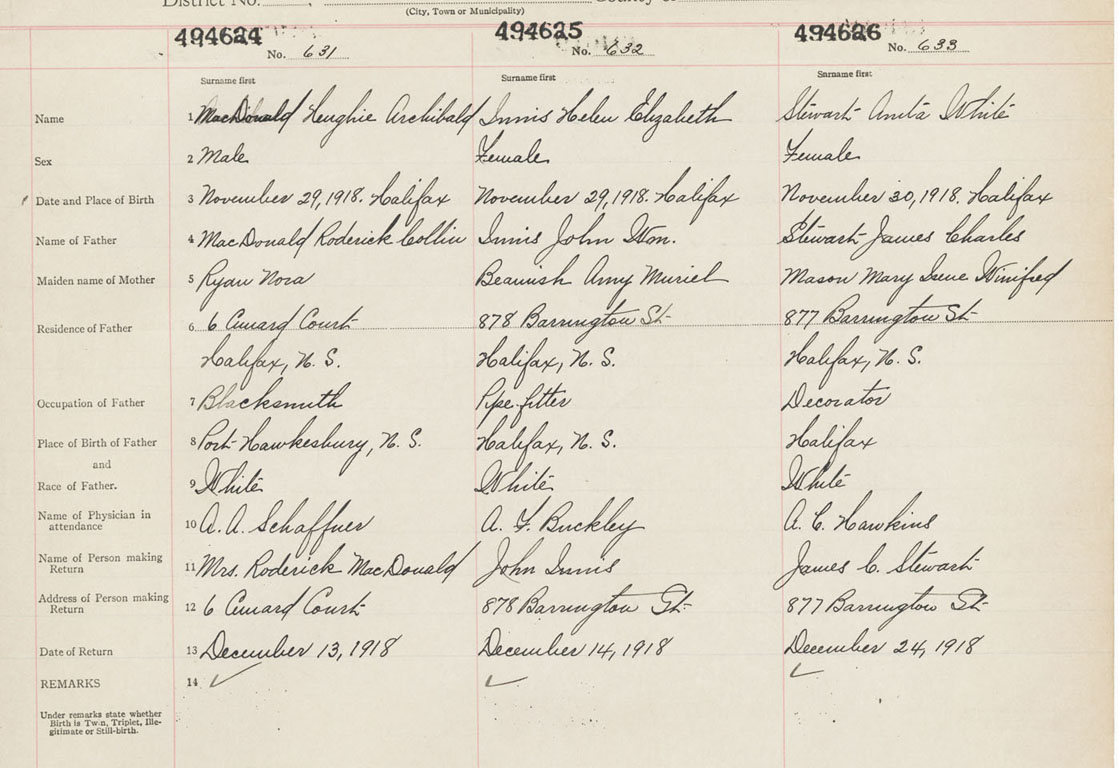 District No. , County of
(City, Town or Municipality)
494624 494625 494626
No. 631 No. 632 No. 633
Surname first Surname first Surname first
Name 1 MacDonald Heughie Archibald Innis Helen Elizabeth Stewart Anita White
Sex 2 Male Female Female
Date and Place of Birth 3 November 29, 1918. Halifax November 29, 1918. Halifax November 30, 1918. Halifax
Name of Father 4 MacDonald Roderick Collin Innis John Wm. Stewart James Charles
Maiden name of Mother 5 Ryan Nora Beamish Amy Muriel Mason Mary Irene Winifred
Residence of Father 6 6 Cunard Court 878 Barrington St 877 Barrington St
Halifax, N. S. Halifax, N. S. Halifax, N. S.
Occupation of Father 7 Blacksmith Pipe-fitter Decorator
Place of Birth of Father 8 Port Hawkesbury, N. S. Halifax, N. S. Halifax
and
Race of Father. 9 White White White
Name of Physician in attendance 10 A. A. Schaffner A. F. Buckley A. C. Hawkins
Name of Person making Return 11 Mrs. Roderick MacDonald John Innis James C. Stewart
Address of Person making Return 12 6 Cunard Court 878 Barrington St 877 Barrington St
Date of Return 13 December 13, 1918 December 14, 1918 December 24, 1918
REMARKS 14 ✓ ✓ ✓
Under remarks state whether
Birth is Twin, Triplet, Ille-
gitimate or Still-birth.